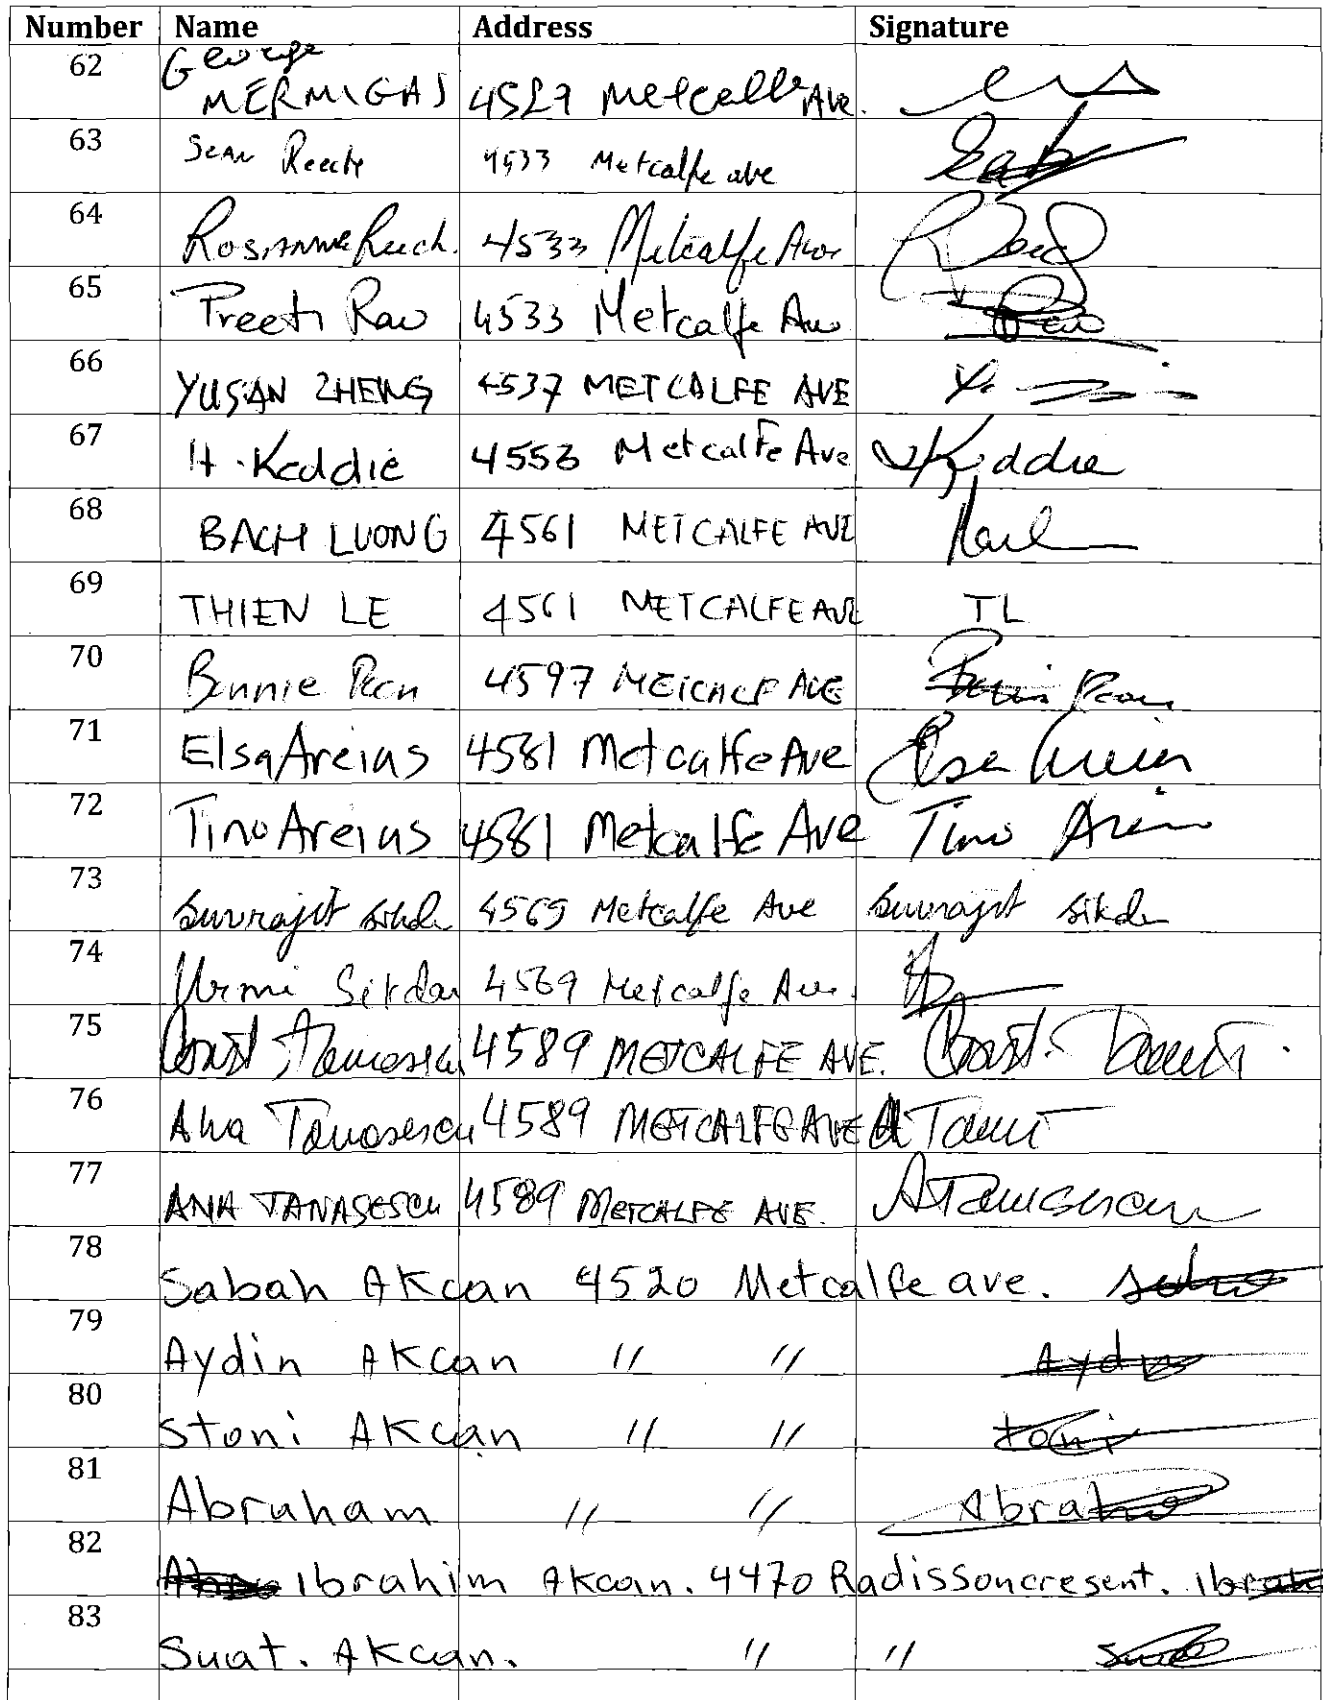 Number Name Address Signature
62 George
MERMIGAS 4527 Metcalfe Ave.
63 Sean Reech 4533 Metcalfe ave
64 Rosanne Reech. 4533 Metcalfe Ave
65 Preeti Rao 4533 Metcalfe Ave
66 YUSAN ZHENG 4537 METCALFE AVE
67 H. Keddie 4553 Metcalfe Ave Keddie
68 BACH LUONG 4561 METCALFE AVE
69 THIEN LE 4561 METCALFE AVE TL
70 Bennie 4597 METCALF AVE
71 Elsa Areias 4581 Metcalfe Ave Elsa
72 Tino Areias 4581 Metcalfe Ave Tino
73 Suvrajit Sikdar 4569 Metcalfe Ave Suvrajit Sikdar
74 Urmi Sikdar 4569 Metcalfe Ave.
75 Tanasescu 4589 METCALFE AVE.
76 Ana Tanasescu 4589 METCALFE AVE
77 ANA TANASESCU 4589 METCALFE AVE. ATanasescu
78 Sabah Akcan 4520 Metcalfe ave.
79 Aydin Akcan 〃 〃 Aydin
80 Stoni Akcan 〃 〃 toni
81 Abraham 〃 〃 Abraha
82 Ibrahim Akcan. 4470 Radissoncresent. Ibrah
83 Suat. Akcan. 〃 〃